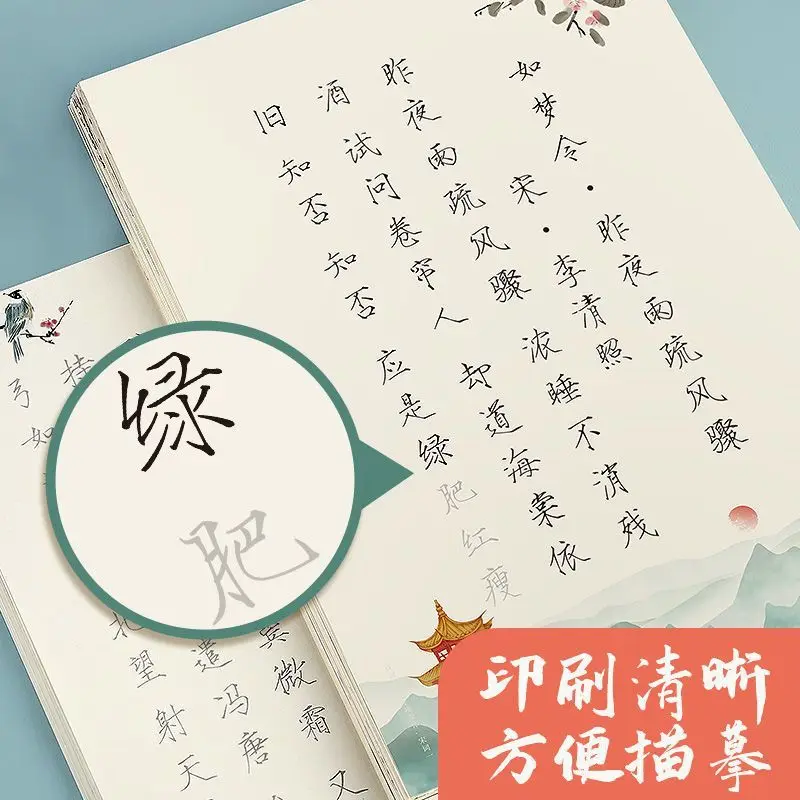 如梦令·昨夜雨疏风骤
宋·李清照
昨夜雨疏风骤 浓睡不消残
酒试问卷帘人 却道海棠依
旧知否知否 应是绿肥红瘦
宋词一
绿
肥
挂
微霜 又
遣冯唐
望射天
弓如
印刷清晰
方便描摹